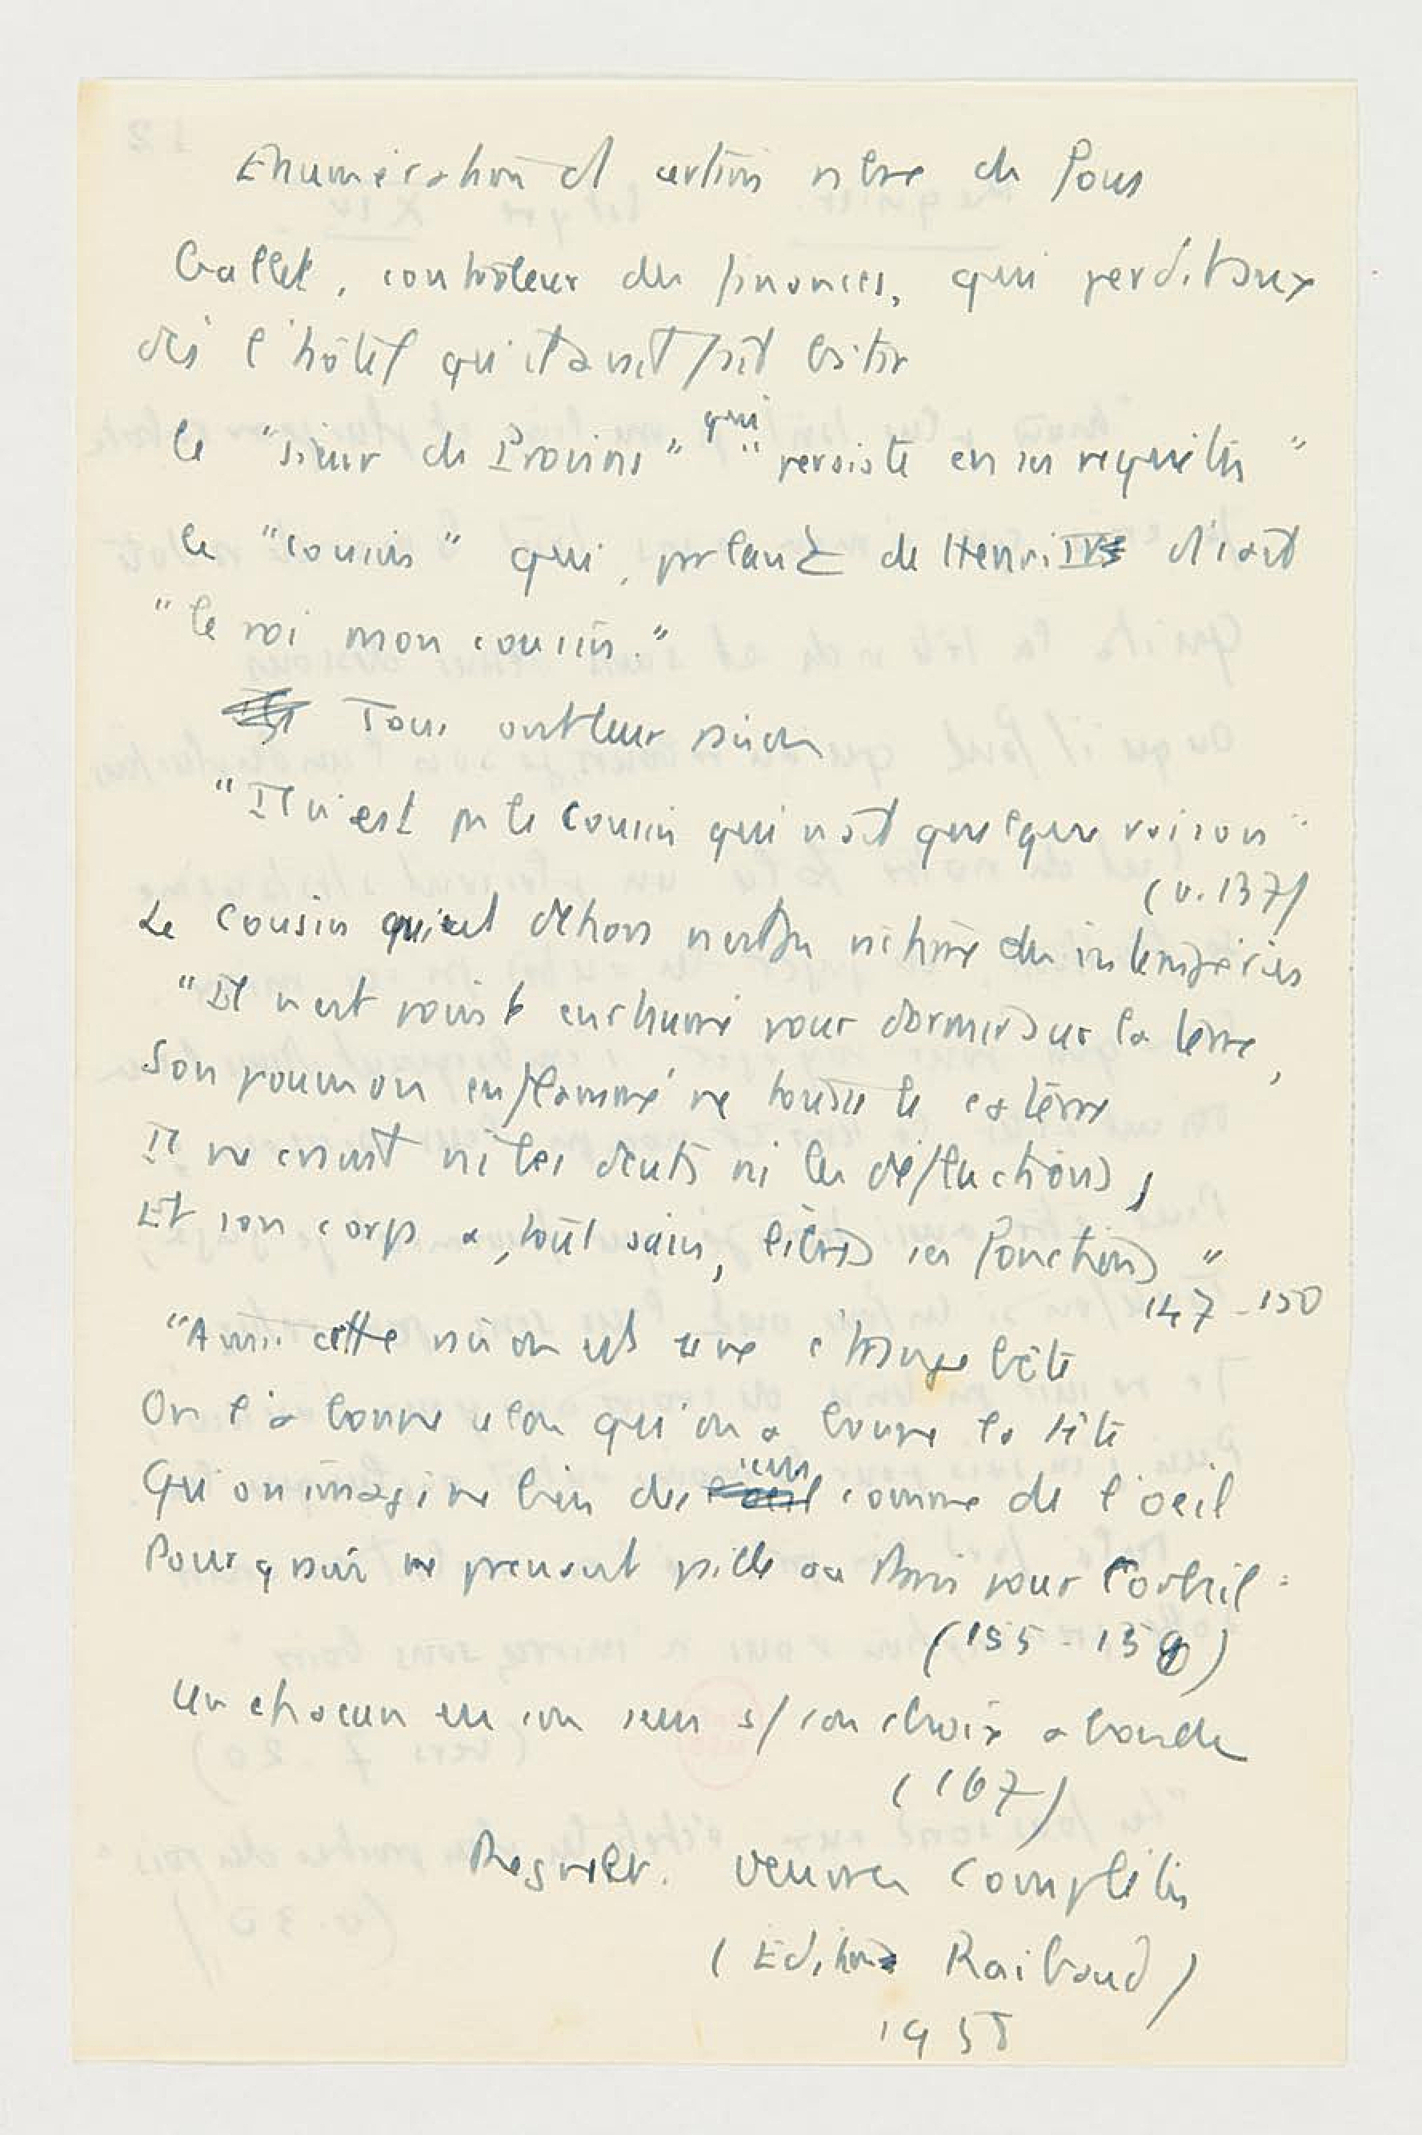 Enumération d'un certain nbre de fous
Gallet, contrôleur des finances, qui perdit aux
dés l'hôtel qu'il avait fait bâtir
le "sieur de Provins" qui "persiste en ses requêtes"
le "cousin" qui, parlant de Henri IV disait
"le roi mon cousin."
Tous ont leur raison
"Il n'est pas le cousin qui n'ait quelque raison"
(v. 137)
Le cousin qui est dehors n'est pas victime des intempéries
"Il n'est point enrhumé pour dormir sur la terre,
Son poumon enflammé ne tousse le catèrre
Il ne craint ni les dents ni les défluctions,
Et son corps a, tout sain, libres ses fonctions"
147-150
"Ami cette raison est une étrange bête
On l'a bonne selon qu'on a bonne la tête
Qu'on imagine bien du sens comme de l'oeil
Pourquoi ne prenant pied ou Paris pour Corbeil
(155-159)
Un chacun en son sens s/ son choix abonde
(167)
Regnier. Oeuvres Complètes
(Edition Raibaud)
1958